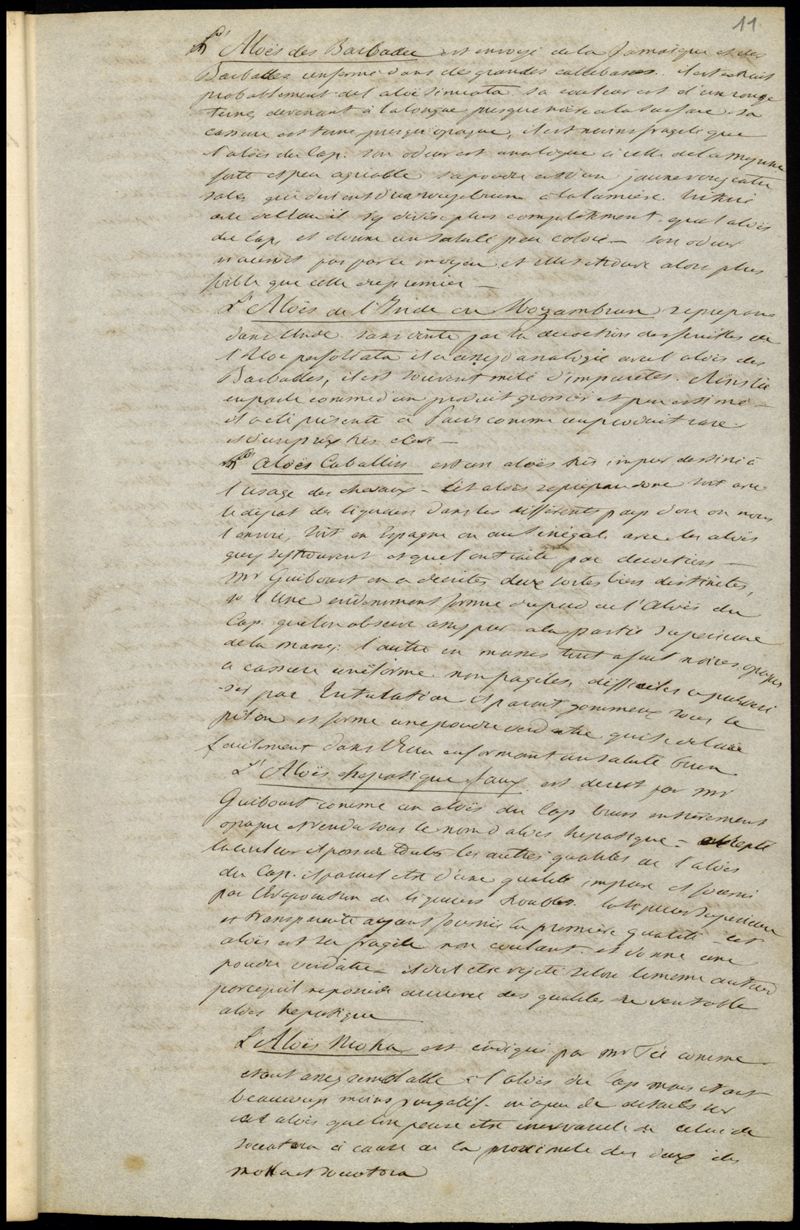 11
L'Aloës des Barbades est envoyé de la Jamaique et des
Barbades renfermé dans de grandes calebasses. il est extrait
probablement de l'aloe sinuata sa couleur est d'un rouge
terne, devenant à la longue presque noire à la surface. sa
cassure est terne, presqu'opaque, il est moins fragile que
l'aloës du Cap. son odeur est analogue à celle de la myrrhe
forte et peu agréable sa poudre est d'un jaune rougeatre
sale, qui devient d'un rouge brun à la lumière. trituré
avec de l'eau il s'y divise plus complètement que l'aloës
du Cap, et donne un soluté peu coloré — son odeur
par ce moyen et alors plus
faible que celle du premier —
L'Aloës de l'Inde ou Mozambrun se prepare
dans l'Inde par la decoction des feuilles de
l'Aloe perfoliata il a assez d'analogie avec l'aloës des
Barbades, il est souvent mêlé d'impuretés. Ainslie
en parle comme d'un produit grossier et peu estimé —
il a été présenté à Paris comme un produit rare
et d'un prix très élevé —
L'aloës Caballin est un aloës très impur destiné à
l'usage des chevaux — Cet aloës se prepare soit avec
le dépot des liqueurs dans les différents pays d'où on nous
l'envoie, soit en Espagne ou au Sénégal avec les aloës
qui s'y trouvent et que l'on traite par decoction —
Mr Guibourt en a décrites deux sortes bien distinctes,
l'une evidemment formée du pied de l'Aloës du
Cap. que l'on observe assez pur à la partie superieure
de la masse; l'autre en masses tout a fait noires, opaques
à cassure uniforme non fragiles, difficiles à pulveri
-ser par trituration et paroit gommeux sous le
pilon et forme une poudre verdatre qui se delaie
facilement dans l'Eau en formant un soluté brun
L'Aloës hepatique faux est decrit par Mr
Guibourt comme un aloës du Cap brun entièrement
opaque et vendu sous le nom d'aloës hepatique — excepté
la couleur il possède toutes les autres qualités de l'aloës
du Cap. il paroit etre d'une qualité impure et fourni
par l'évaporation de liqueurs troubles la liqueur superieure
et transparente ayant fourni la première qualité — cet
aloës est sec fragile non coulant et donne une
poudre verdatre — il doit etre rejeté selon le meme auteur
parcequ'il ne possède aucune des qualités du veritable
aloës hepatique
L'Aloës Moka est indiqué par Mr Fée comme
etant assez semblable à l'aloës du Cap mais etant
beaucoup moins purgatif on a peu de details sur
cet aloës que l'on pense etre de celui de
socotora à cause de la proximité des deux iles
moka et socotora